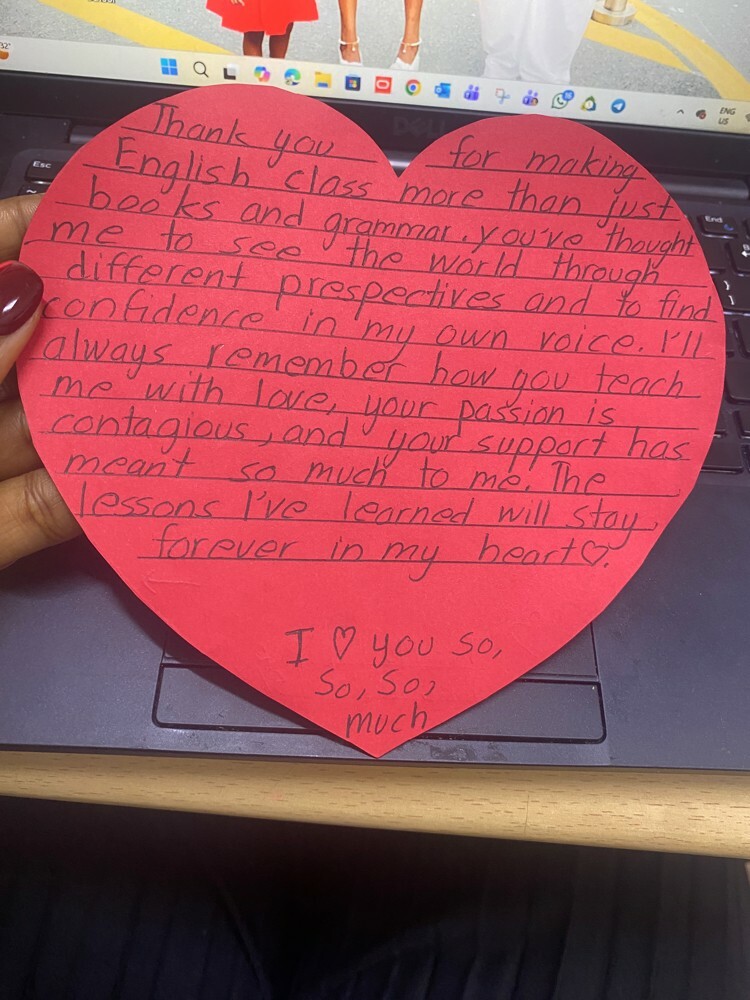 school
32°
ENG
US
DELL
Esc
End
Thank you for making
English class more than just
books and grammar. you've thought
me to see the world through
different prespectives and to find
confidence in my own voice. I'll
always remember how you teach
me with love, your passion is
contagious, and your support has
meant so much to me. The
lessons I've learned will stay
forever in my heart♡.
I ♡ you so,
so, so,
much